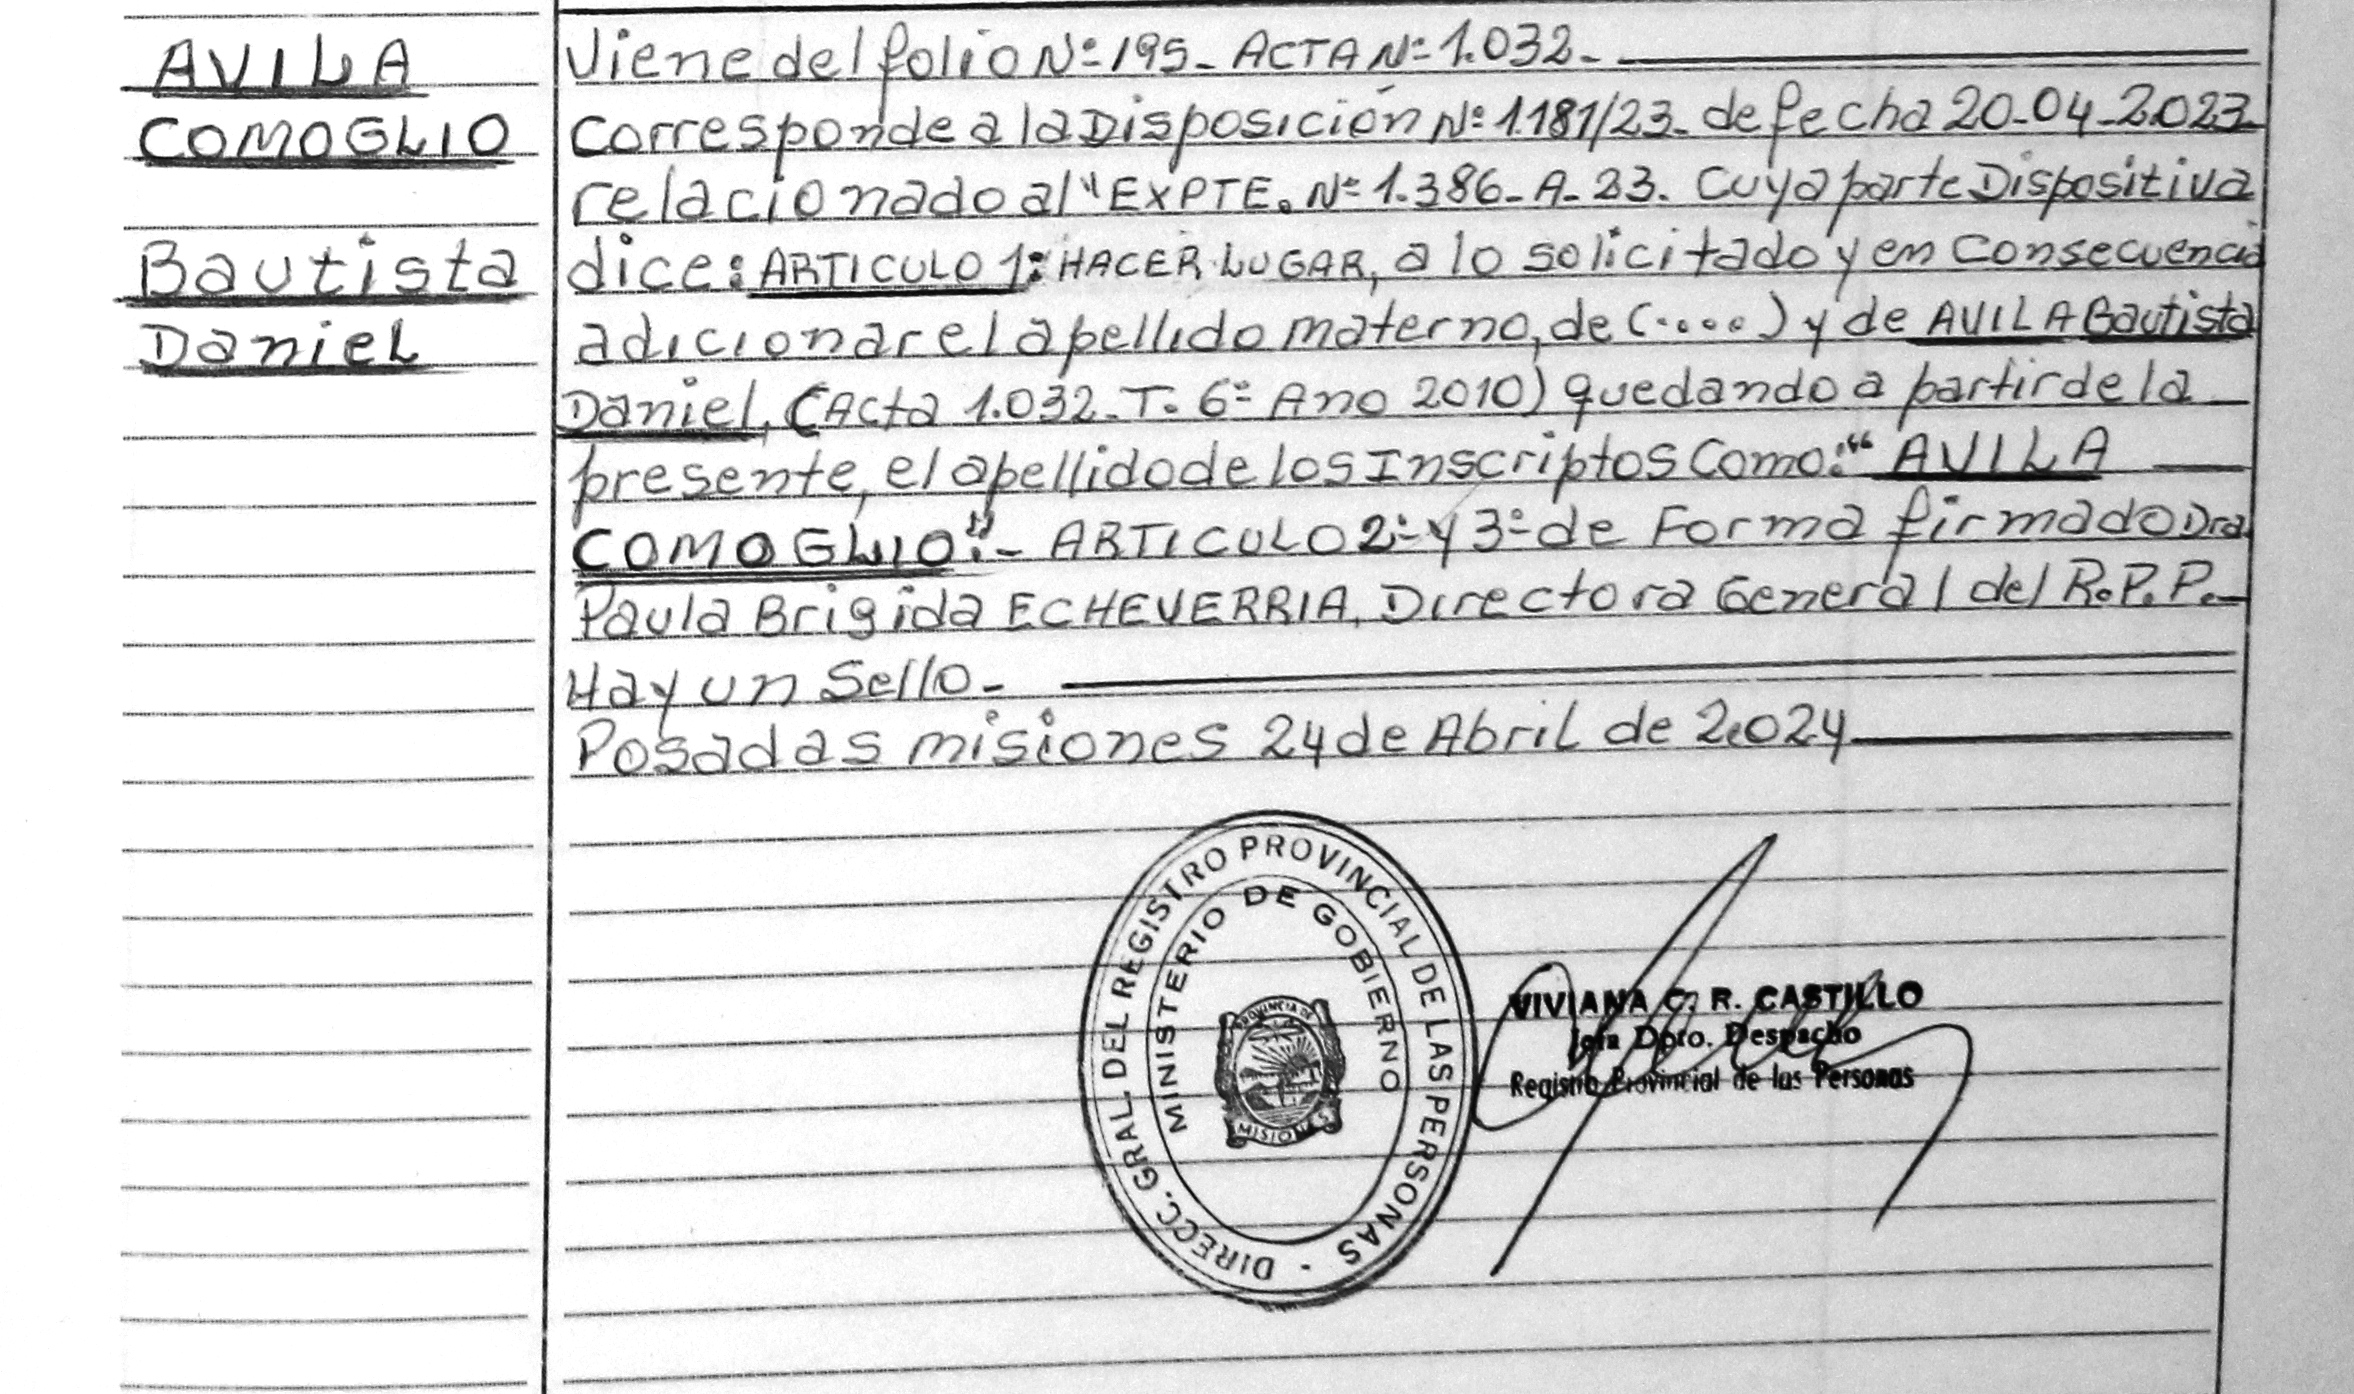 AVILA
COMOGLIO
Bautista
Daniel
Viene del folio Nº 195- ACTA Nº 1.032-
Corresponde a la Disposición Nº 1.181/23- de fecha 20-04-2.023-
relacionado al "EXPTE. Nº 1.386-A-23. Cuya parte Dispositiva
dice: ARTICULO 1: HACER LUGAR, a lo solicitado y en Consecuencia
adicionar el apellido materno, de (....) y de AVILA Bautista
Daniel, (Acta 1.032-T. 6º Ano 2010) quedando a partir de la
presente, el apellido de los Inscriptos Como: "AVILA
COMOGLIO".- ARTICULO 2º y 3º de Forma firmado Dra
Paula Brigida ECHEVERRIA, Directora General del R.P.P.-
Hay un Sello-
Posadas misiones 24 de Abril de 2.024
DIRECC. GRAL DEL REGISTRO PROVINCIAL DE LAS PERSONAS -
MINISTERIO DE GOBIERNO
PROVINCIA DE
MISIONES
VIVIANA C. R. CASTILLO
Jefa Dpto. Despacho
Registro Provincial de las Personas